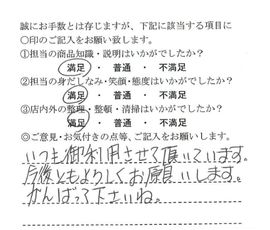 誠にお手数とは存じますが、下記に該当する項目に
〇印のご記入をお願い致します。
①担当の商品知識・説明はいかがでしたか？
満足 ・ 普通 ・ 不満足
②担当の身だしなみ・笑顔・態度はいかがでしたか？
満足 ・ 普通 ・ 不満足
③店内外の整理・整頓・清掃はいかがでしたか？
満足 ・ 普通 ・ 不満足
◎ご意見・お気付きの点等、ご記入をお願いします。
いつも御利用させて頂いています。
今後ともよろしくお願いします。
がんばって下さいね。